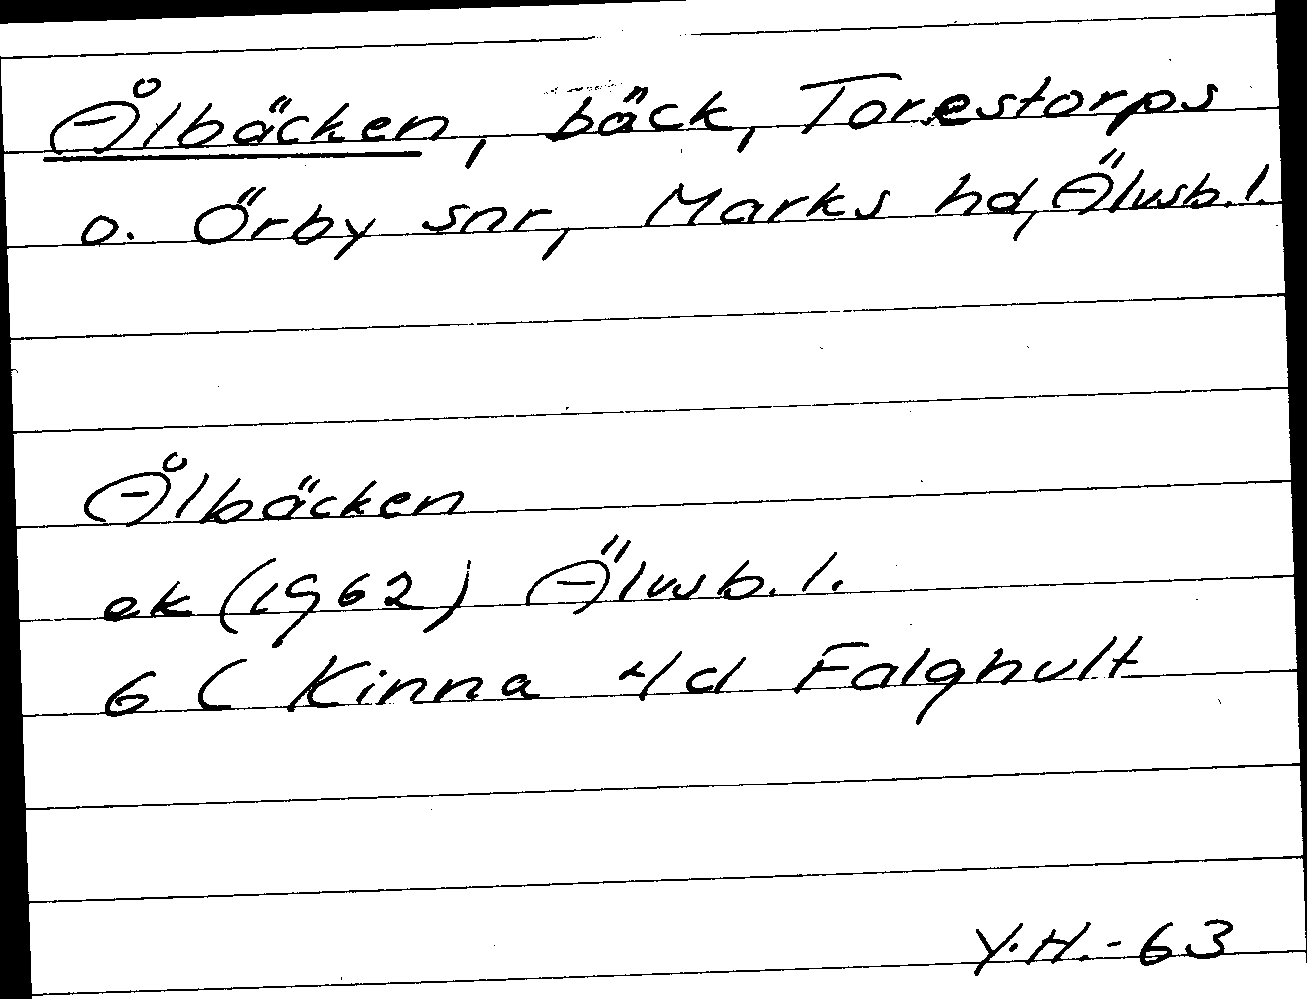 Ålbäcken, bäck, Torestorps
o. Örby snr, Marks hd, Älvsb. l.
Ålbäcken
ek (1962) Älvsb. l.
6 C Kinna 4d Falghult
Y.H.-63